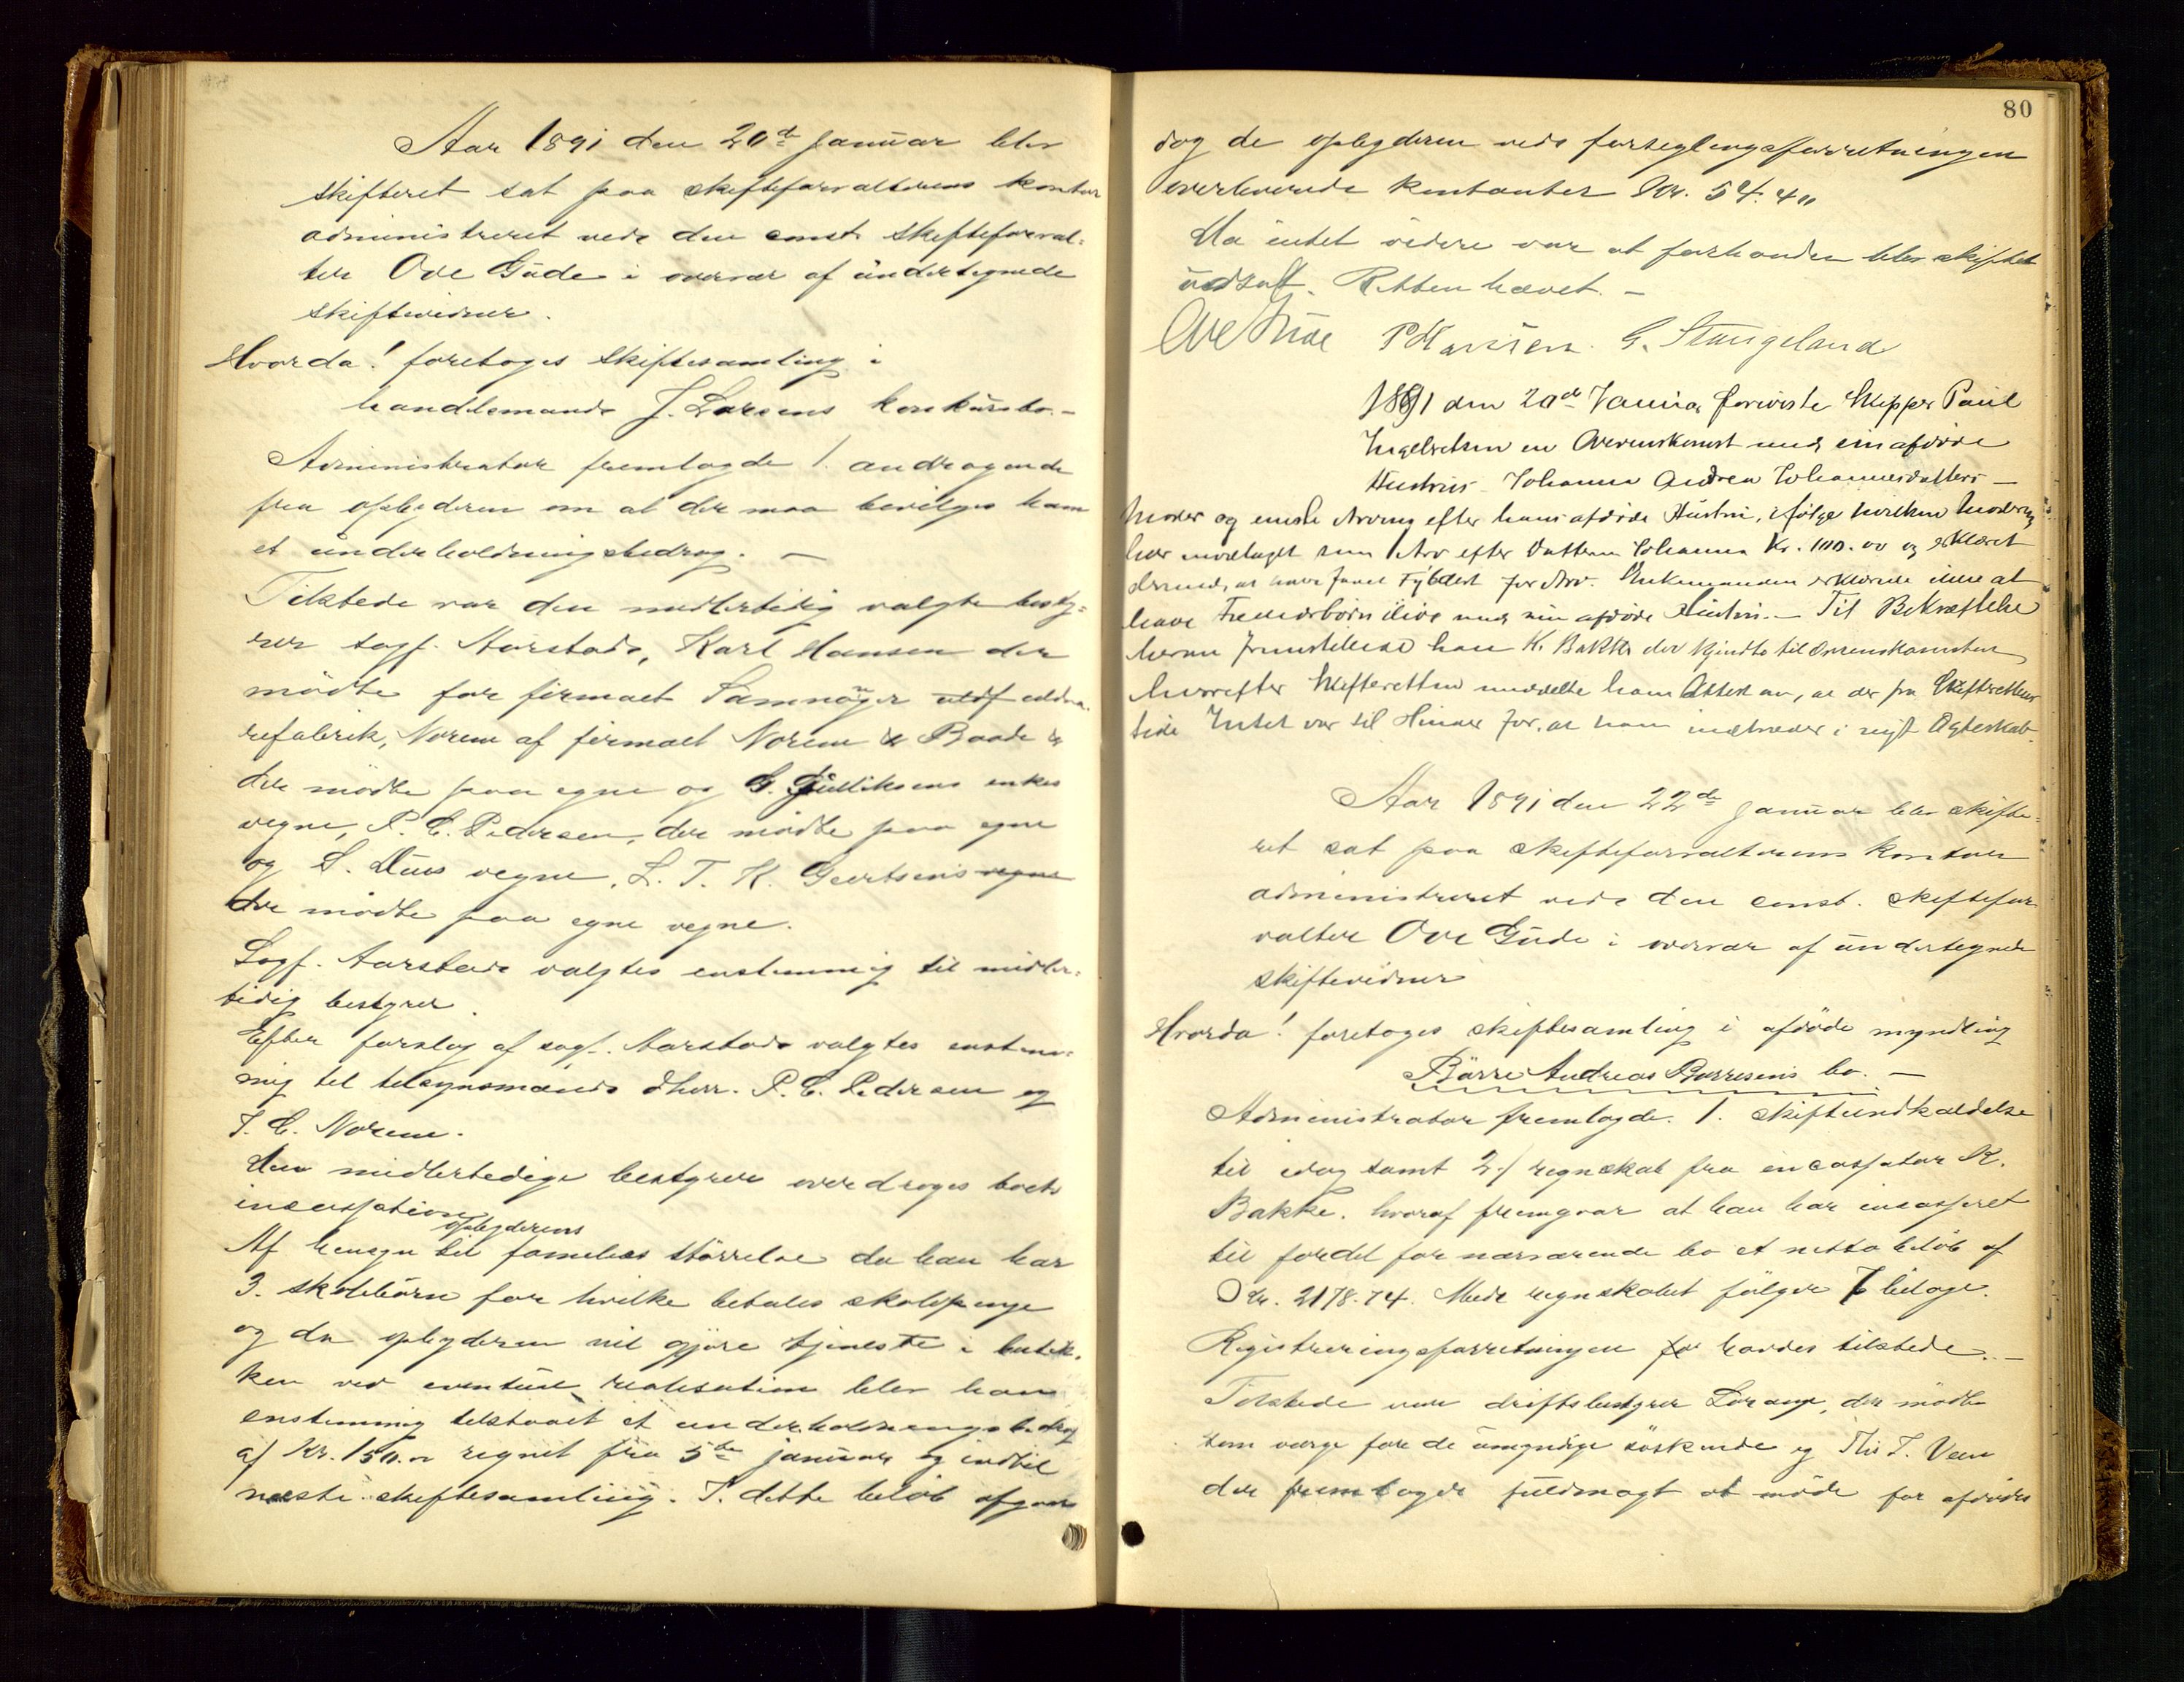 Aar 1891 den 20de Januar blev
skifteret sat paa skifteforvalterens kontor
administreret ved den const. skifteforval-
ter Ove Gude i overvær af undertegnede
skiftevidner.
Hvorda! foretoges skiftesamling i
handelsmand J. Larsens konkursbo.-
Administrator fremlagde 1. andragende
fra opbyderen om at der maa bevilges ham
et underholdningsbidrag. -
Tilstede var den midlertidig valgte besty-
rer sagf. Aarstad, Karl Hansen der
mödte for firmaet Samnanger uldf uldva-
refabrik, Norem af firmaet Norem & Baade
der mödte paa egne og G. Gulliksens enkes
vegne, P. C. Pedersen, der mödte paa egne
og S. Dues vegne, L. T. K. Geertsens vegne
der mödte paa egne vegne.
Sagf. Aarstad valgtes enstemmig til midler-
tidig bestyrer.
Efter forslag af sagf. Aarstad valgtes enstem-
mig til tilsynsmænd dherr. P. C. Pedersen og
T. C. Norem.
Den midlertidige bestyrer overdroges boets
incassation
opbyderens
Af hensyn til families störrelse da han har
3. skolebörn for hvilke betales skolepenge
og da opbyderen vil gjöre tjeneste i butik-
ken ved eventuel realisation blev ham
enstemmig tilstaaet et underholdningsbidrag
af Kr. 150.- regnet fra 5te januar og indtil
næste skiftesamling. I dette belöb afgaar
80
dog de opbyderen ved forseglingsforretningen
overleverede kontanter Kr. 54.40
Da intet videre var at forhandle blev skiftet
udsat. Retten hævet. -
Ove Gude P Hansen. G. Stangeland
1891 den 20de Januar foreviste Skipper Paul
Ingebretsen en Overenskomst med sin afdöde
Hustrus Johanna Andrea Johannesdatters -
Moder og eneste Arving efter hans afdöde Hustru, ifölge hvilken Moderen
har modtaget som Arv efter Datteren Johanna Kr. 100.00 og erklæret
dermed at have faaet Fyldest for Arv. Enkemanden erklærede ikke at
have Fællesbörn ilive med sin afdöde Hustru. - Til Bekræftelse
herom fremstillede han K. Bakke der kjendte til Overenskomsten
hvorefter Skifteretten meddelte ham Attest om, at der fra Skifterettens
Side Intet var til Hinder for, at han indtræder i nyt Ægteskab.
Aar 1891 den 22de januar blev skifte-
ret sat paa skifteforvalterens kontor
administreret ved den const. skiftefor-
valter Ove Gude i overvær af undertegnede
skiftevidner
Hvorda! foretoges skiftesamling i afdöde myndling
Börre Andreas Börresens bo. -
Administrator fremlagde. 1. skifteindkaldelse
til idag samt 2/ regnskab fra incassator K.
Bakke. hvoraf fremgaar at han har incasseret
til fordel for nærværende bo et netto belöb af
Kr. 2178.74. Med regnskabet fölger 7 bilage.
Registreringsforretningen for havdes tilstede. -
Tilstede var driftsbestyrer Lorange, der mödte
som værge for de umyndige söskende og T. Veen
der fremlagde fuldmagt at möde for afdödes